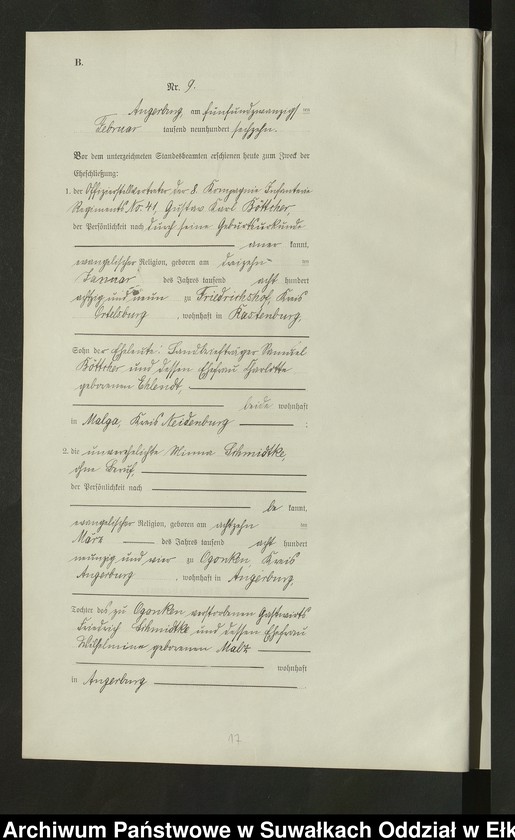 B.
Nr. 9.
Angerburg am fünfundzwanzigs ten
Februar tausend neunhundert sechzehn.
Vor dem unterzeichneten Standesbeamten erschienen heute zum Zweck der
Eheschließung:
1. der Offizierstellvertreter der 8. Kompagnie Infanterie
Regiments No. 41, Gustav Karl Böttcher,
der Persönlichkeit nach durch seine Geburtsurkunde
aner kannt,
evangelischer Religion, geboren am dreizehn ten
Januar des Jahres tausend acht hundert
achtzig und neun zu Friedrichshof, Kreis
Ortelsburg, wohnhaft in Rastenburg,
Sohn der Eheleute: Landbriefträger Samuel
Böttcher und dessen Ehefrau Charlotte
geborenen Ehlendt,
beide wohnhaft
in Malga, Kreis Neidenburg ;
2. die unverehelichte Minna Schmidtke,
ohne Beruf,
der Persönlichkeit nach
be kannt,
evangelischer Religion, geboren am achtzehn ten
März des Jahres tausend acht hundert
neunzig und vier zu Ogonken, Kreis
Angerburg, wohnhaft in Angerburg,
Tochter des zu Ogonken verstorbenen Gastwirts
Friedrich Schmidtke und dessen Ehefrau
Wilhelmine geborenen Malz
wohnhaft
in Angerburg
17
Archiwum Państwowe w Suwałkach Oddział w Ełk